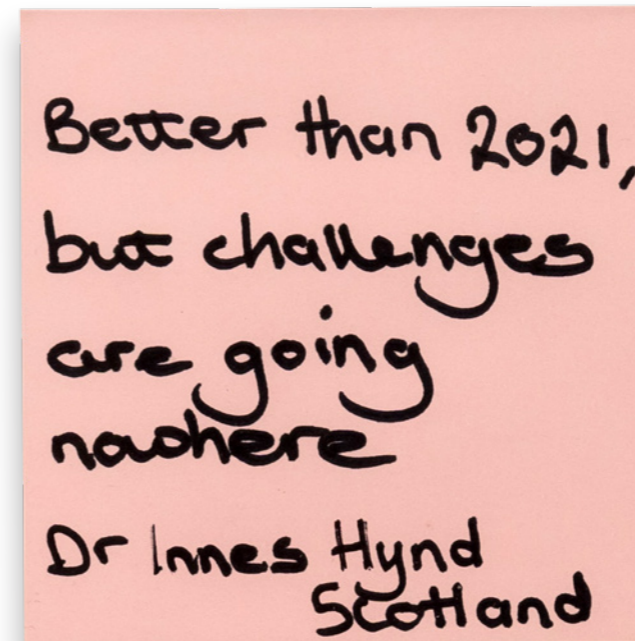 Better than 2021,
but challenges
are going
nowhere
Dr Innes Hynd
Scotland